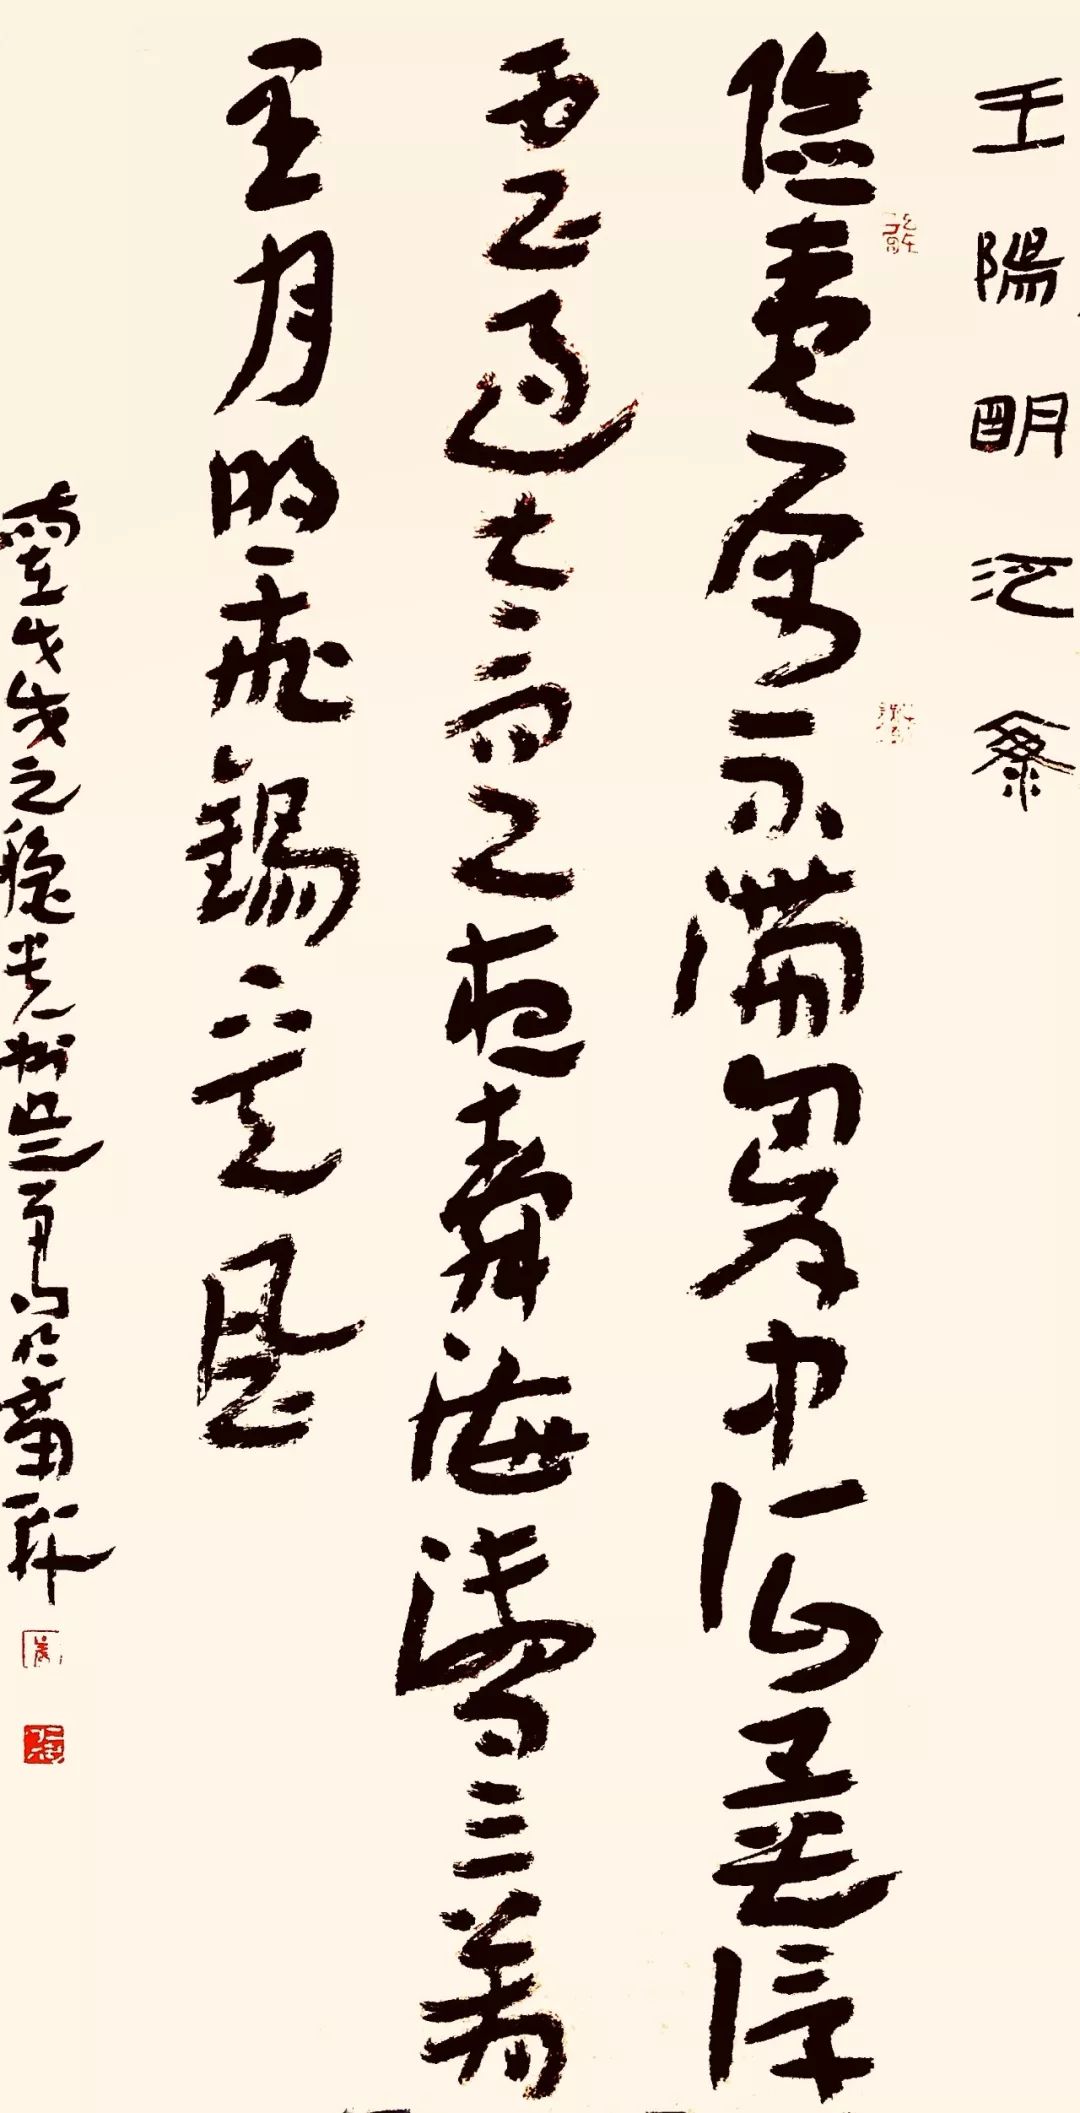 王陽明泛海
險夷原不滯胸中何異浮
雲過太空夜靜海濤三萬
里月明飛錫下天風
戊戌之穐光州